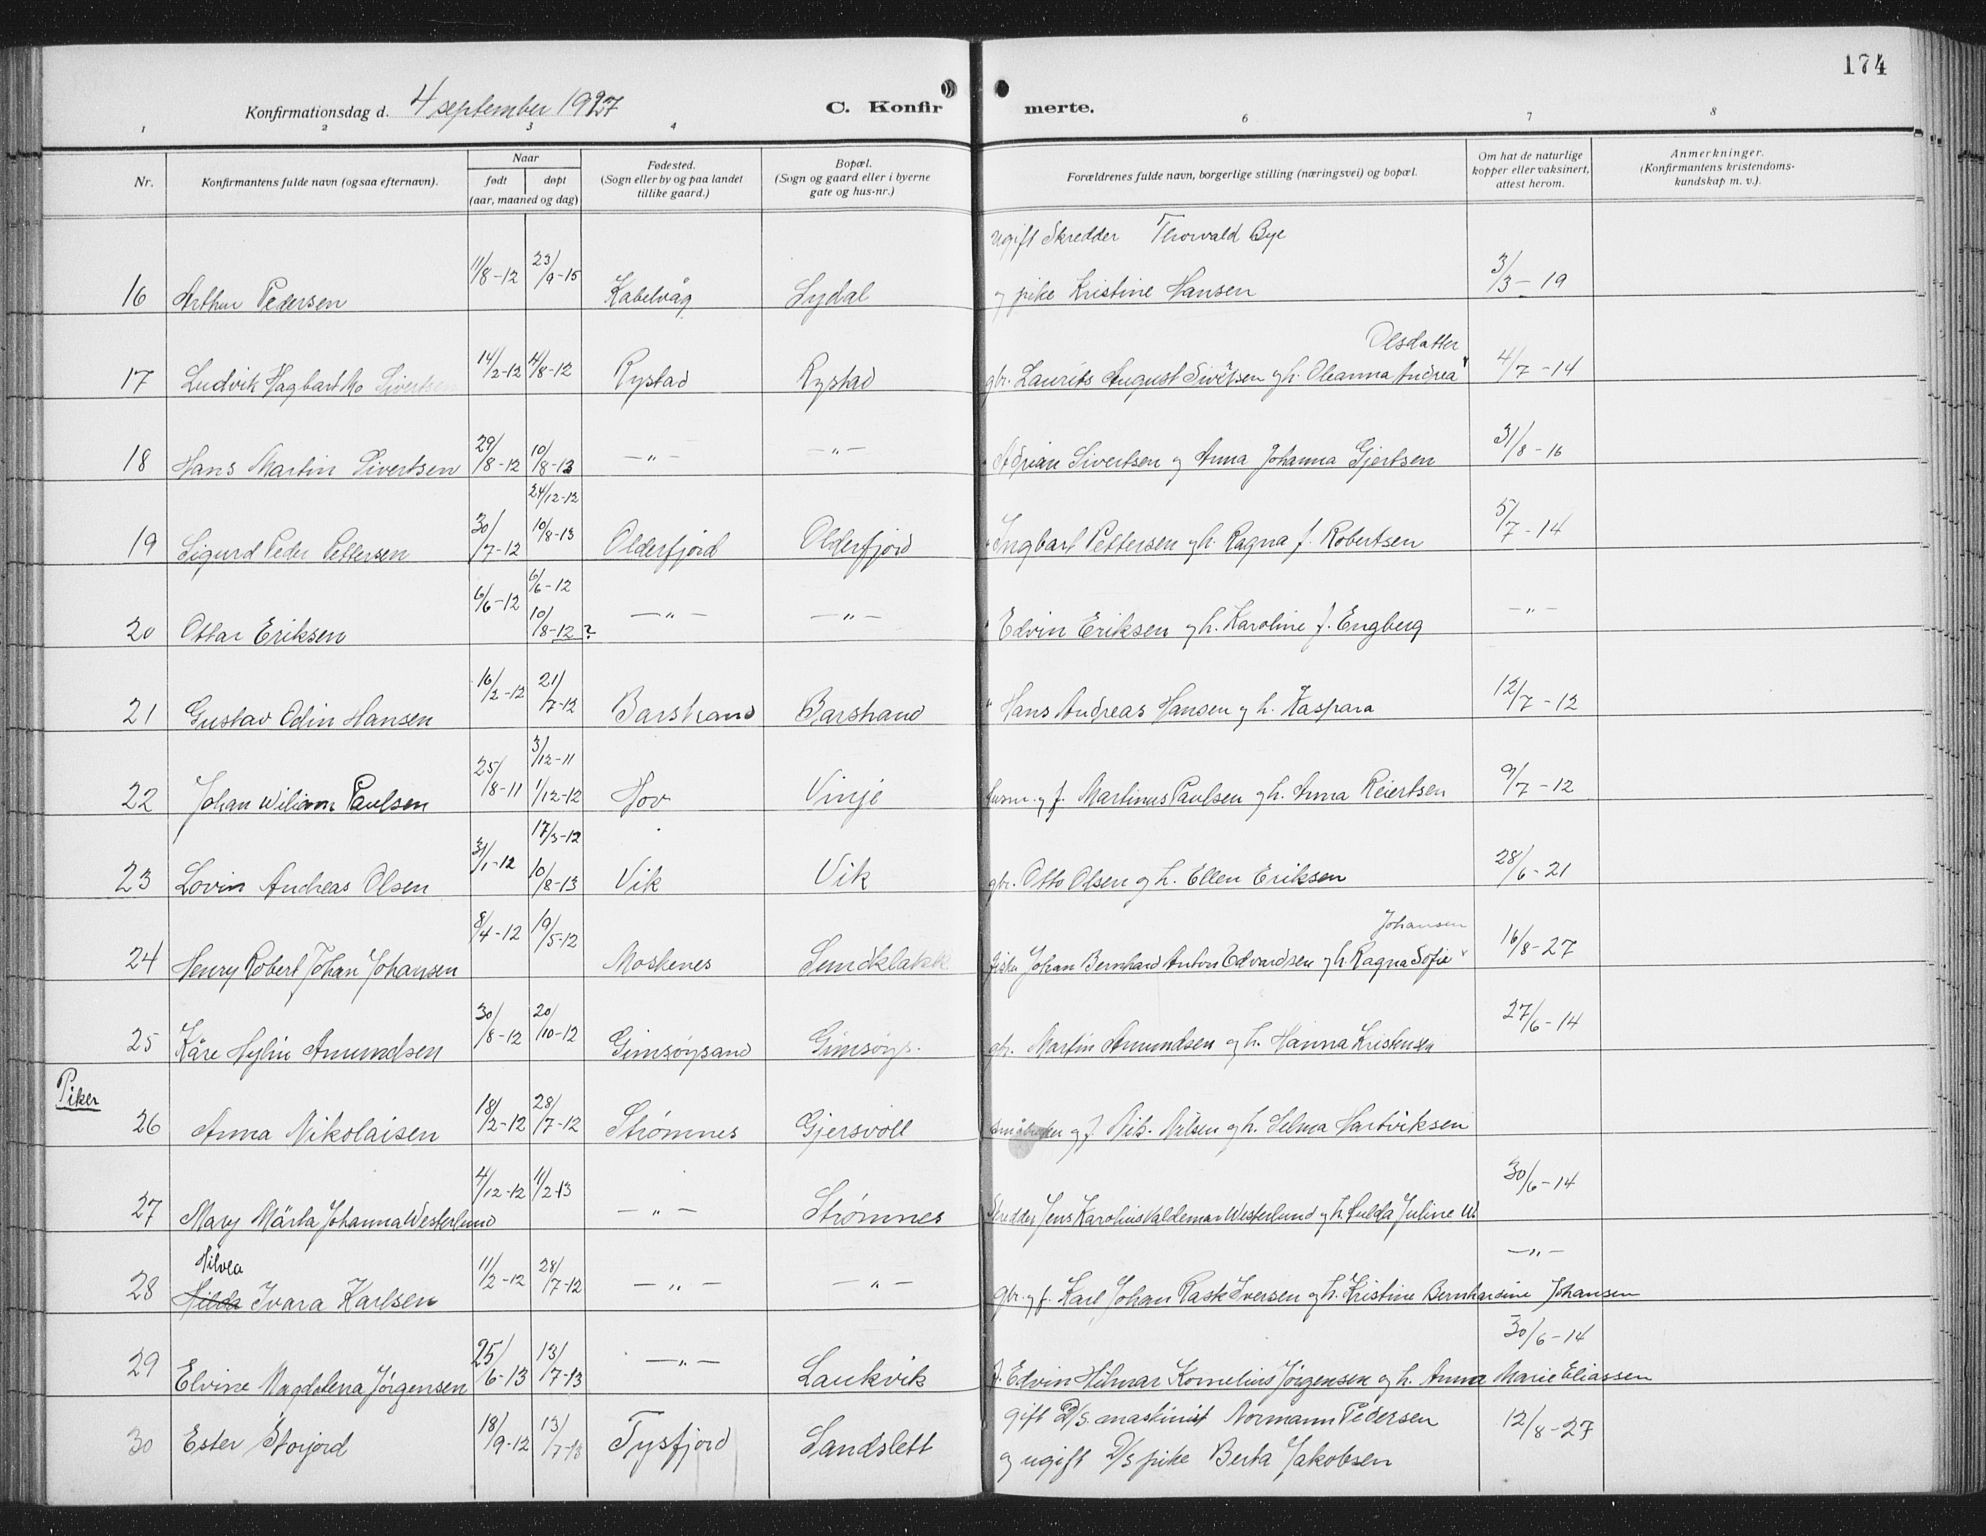 174
Konfirmationsdag d. 4 september 1927 C. Konfirmerte.
1 2 3 4 6 7 8
Nr. Konfirmantens fulde navn (ogsaa efternavn). Naar født døpt (aar, maaned og dag) Fødested. (Sogn eller by og paa landet tillike gaard.) Bopæl. (Sogn og gaard eller i byerne gate og hus-nr.) Forældrenes fulde navn, borgerlige stilling (næringsvei) og bopæl. Om hat de naturlige kopper eller vaksinert, attest herom. Anmerkninger. (Konfirmantens kristendoms-kundskap m. v.).
ugift Skredder Thorvald Bye
16 Arthur Pedersen 11/8-12 23/9-15 Kabelvåg Lydal og pike Kristine Hansen 3/3-19
Olsdatter
17 Ludvik Hagbart Mo Sivertsen 14/2-12 4/8-12 Rystad Rystad gbr. Laurits August Sivertsen og h. Oleanna Andrea 4/7-14
18 Hans Martin Sivertsen 29/8-12 10/8-13 -"- -"- " Adrian Sivertsen og Anna Johanna Gjertsen 31/8-16
24/12-12
19 Sigurd Peder Pettersen 30/7-12 10/8-13 Olderfjord Olderfjord " Ingbart Pettersen og h. Ragna f. Robertsen 5/7-14
6/6-12
20 Ottar Eriksen 6/6-12 10/8-12? -"- -"- " Edvin Eriksen og h. Karoline f. Engberg -"-
21 Gustav Odin Hansen 16/2-12 21/7-12 Barstrand Barstrand " Hans Andreas Hansen og h. Kaspara 12/7-12
3/12-11
22 Johan Wiliam Paulsen 25/8-11 1/12-12 Hov Vinje husm. og f. Martinus Paulsen og h. Anna Reiertsen 9/7-12
17/3-12
23 Lovin Andreas Olsen 31/1-12 10/8-13 Vik Vik gbr. Otto Olsen og h. Ellen Eriksen 28/6-21
Johansen
24 Henry Robert Johan Johansen 8/4-12 19/5-12 Moskenes Sundklakk fisker Johan Bernhard Anton Edvardsen og h. Ragna Sofie 16/8-27
25 Kåre Hylin Amundsen 30/8-12 20/10-12 Gimsøysand Gimsøys. gbr. Martin Amundsen og h. Hanna Kristensen 27/6-14
Piker
26 Anna Nikolaisen 18/2-12 28/7-12 Strømnes Gjersvoll småbruker og f. Nik. Nilsen og h. Selma Hartviksen
27 Mary Märta Johanna Westerlund 4/12-12 11/2-13 -"- Strømnes Skredder Jens Karolius Valdemar Westerlund og h. Hulda Juline W. 30/6-14
Hilvea
28 Hilda Ivara Karlsen 11/2-12 28/7-12 -"- -"- gbr. og f. Karl Johan Rask Iversen og h. Kristine Bernhardine Johansen -"-
29 Elvine Magdalena Jørgensen 25/6-13 13/7-13 -"- Laukvik f. Edvin Hilmar Kornelius Jørgensen og h. Anna Marie Eliassen 30/6-14
gift D/s. maskinist Normann Pedersen
30 Ester Storjord 18/9-12 13/7-13 Tysfjord Sandslett og ugift D/s pike Berta Jakobsen 12/8-27